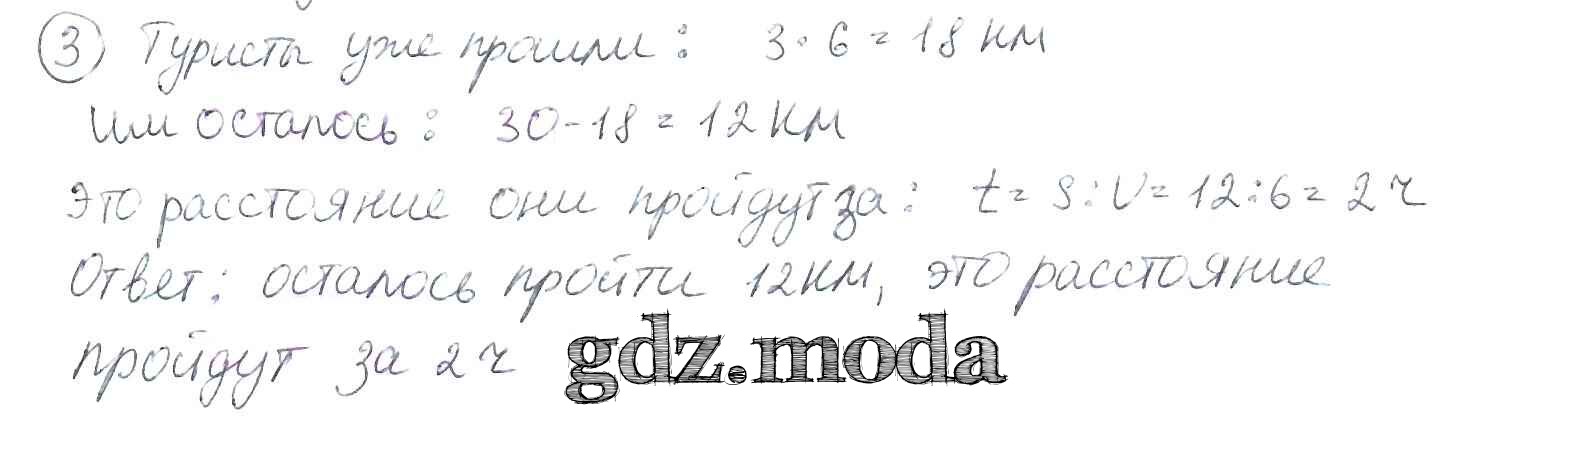 3 Туристы уже прошли: 3·6=18 км
Им осталось: 30-18=12 км
Это расстояние они пройдут за: t=S:V=12:6=2 ч
Ответ: осталось пройти 12 км, это расстояние
пройдут за 2 ч gdz.moda